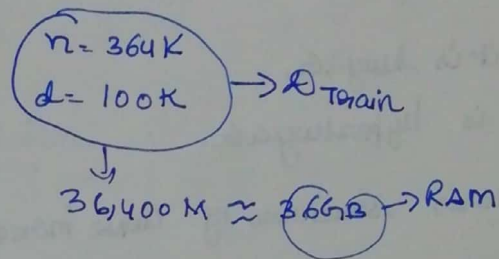 n = 364K
d = 100K → D Train
36,400 M ≈ 36GB → RAM